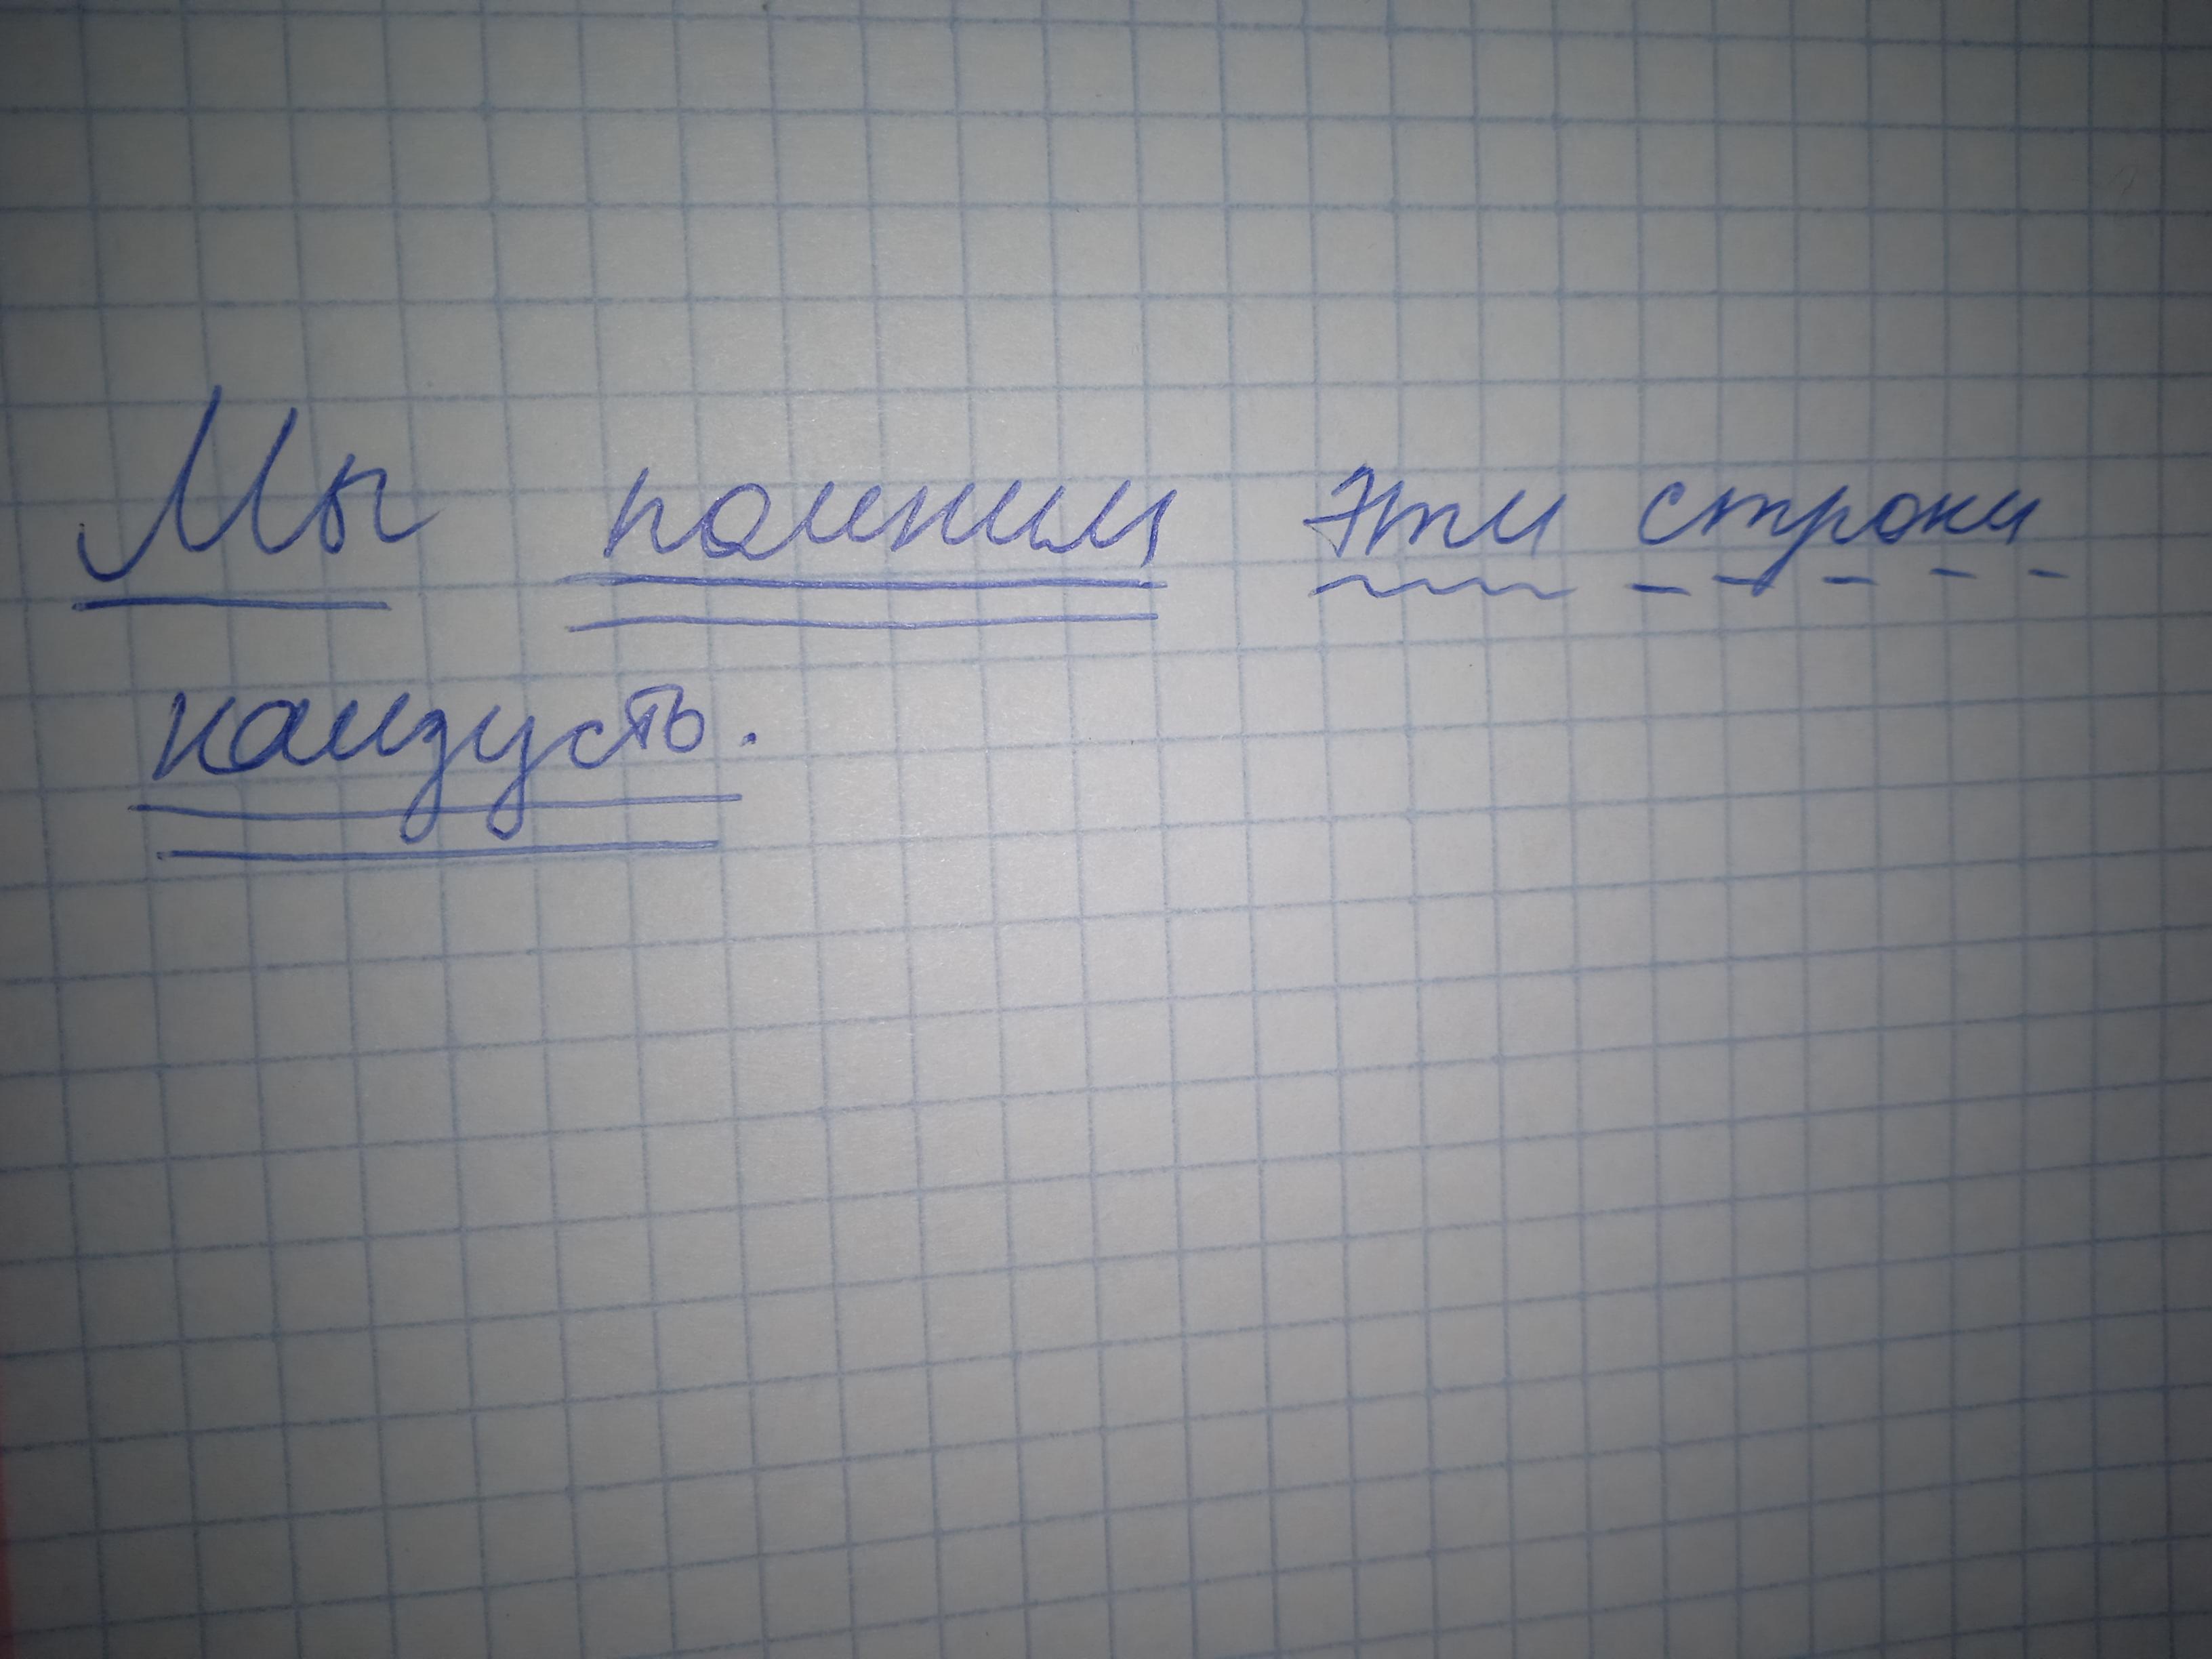 Мы помним эти строки
наизусть.